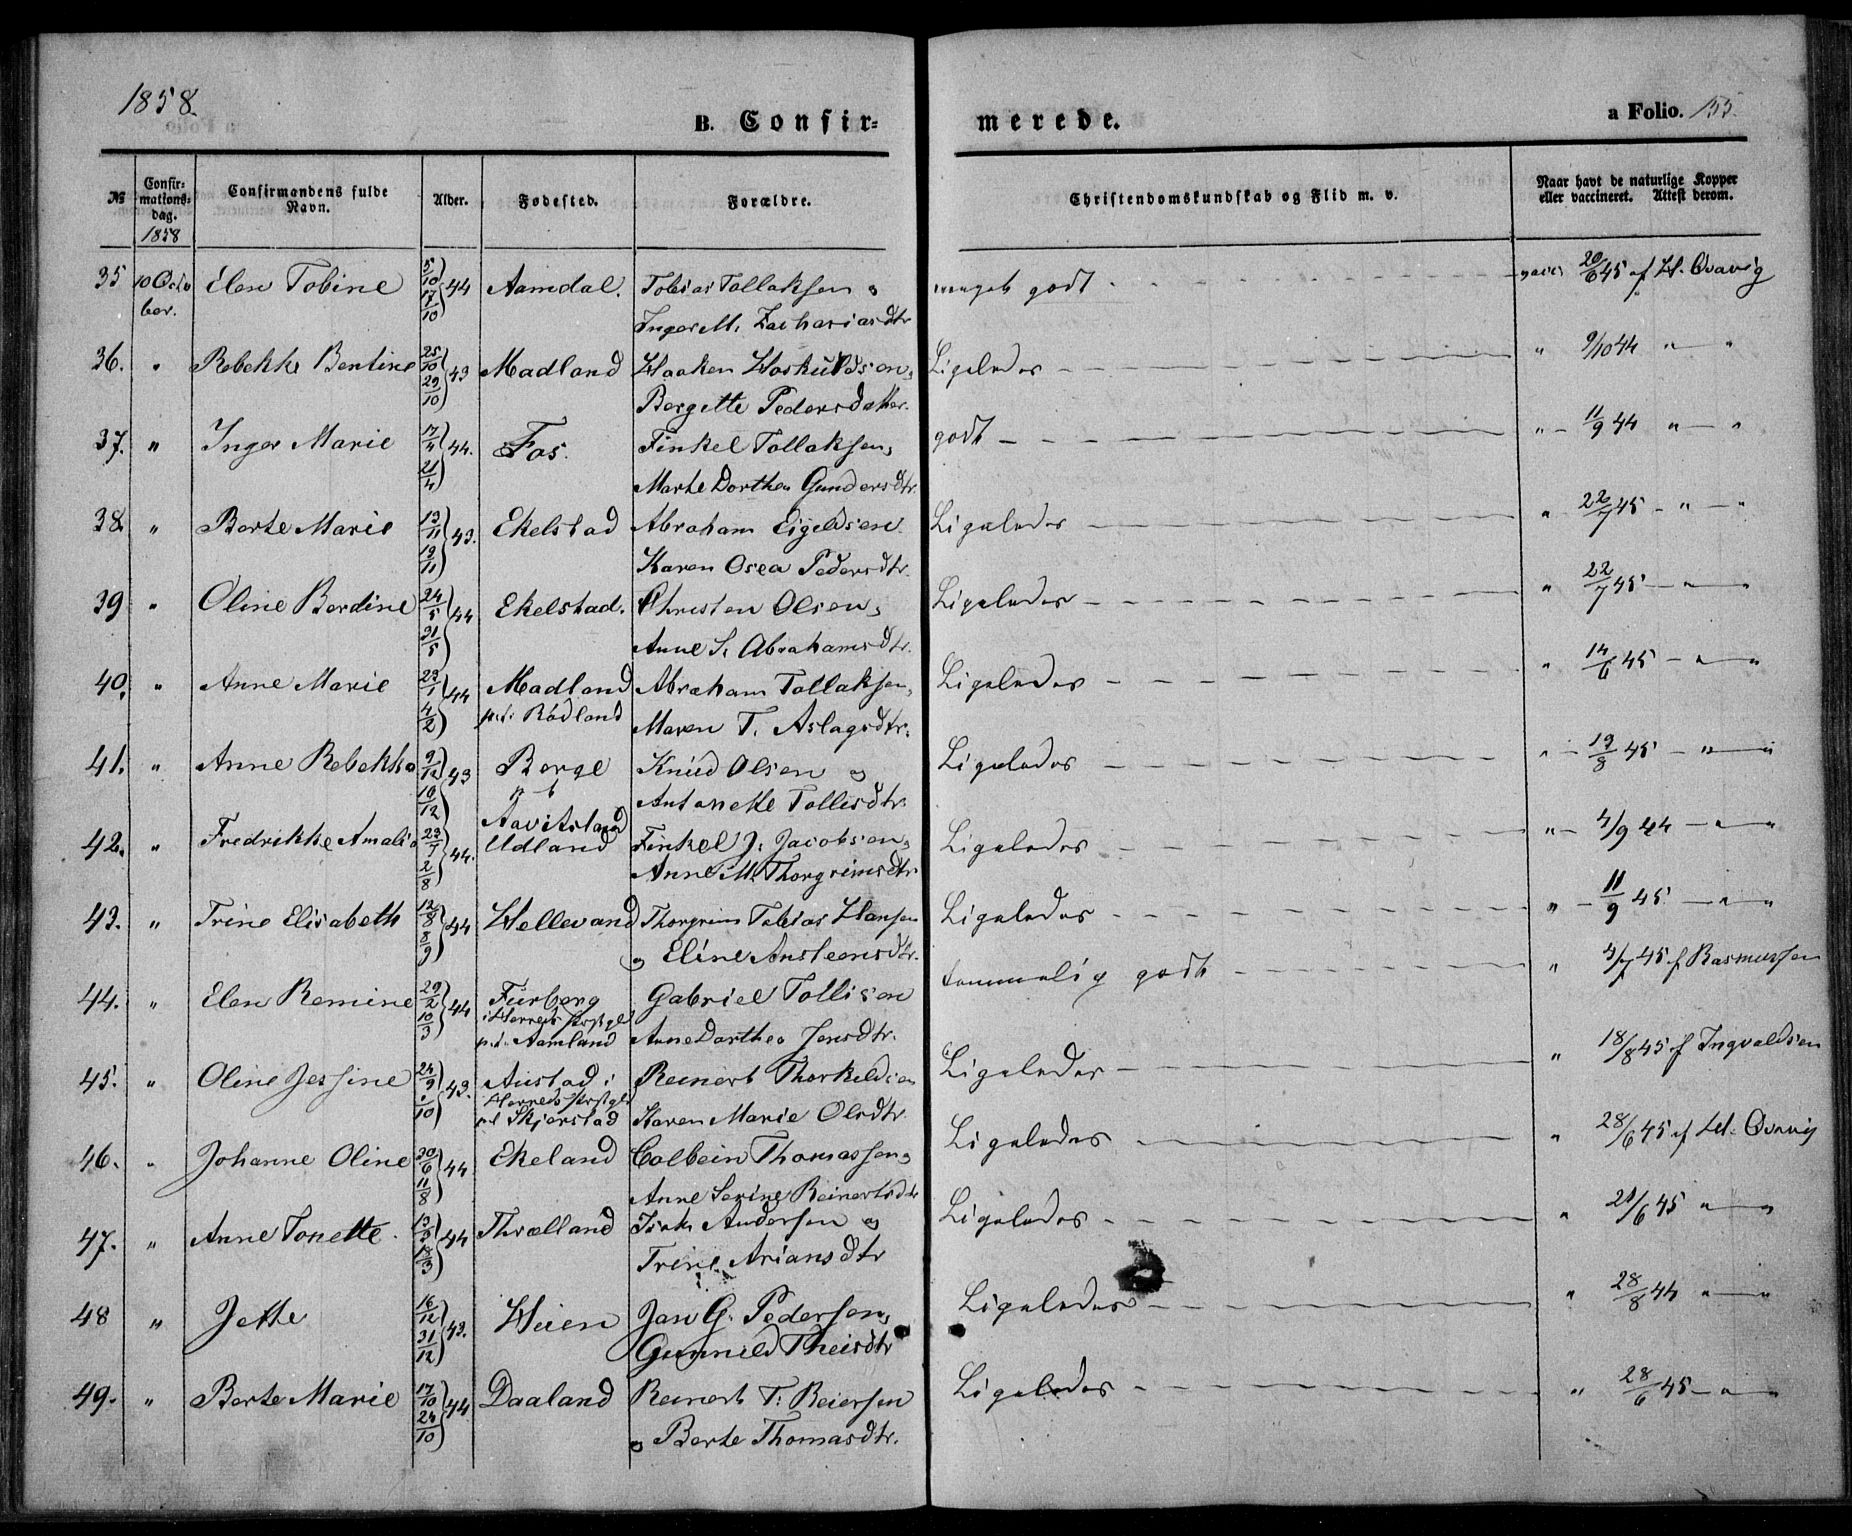 1858.
B. Confir- merede. a Folio. 155.
№ Confir-mations-dag. 1858 Confirmandens fulde Navn. Alder. Fødested. Forældre. Christendomskundskab og Flid m. v. Naar havt de naturlige Kopper eller vaccineret. Attest derom.
35 10 Octo Elen Tobine 5/10 17/10 44 Aamdal. Tobias Tollaksen og meget godt vacc 20/6 45 af H. Qvavig
ber. Inger M. Zachariasdtr
36. " Rebekke Bentine 25/10 29/10 43 Madland Haaken Hoskuldsen, Ligeledes " 9/10 44 " — "
Bergitte Pedersdatter.
37. " Inger Marie 17/4 21/4 44. Fos. Finkel Tollaksen, godt " - 11/9 44 " — "
Marte Dorthea Gundersdtr.
38 " Berte Marie 13/11 19/11 43. Ekelstad Abraham Eigeldsen Ligeledes " 22/7 45 - " — "
Karen Osea Pedersdtr.
39 " Oline Berdine 24/5 31/5 44 Ekelstad. Christen Olsen, Ligeledes " 22/7 45 — " —
Anne S. Abrahamsdtr.
40. " Anne Marie 23/1 4/2 44 Madland Abraham Tollaksen, Ligeledes " 14/6 45 — " — "
p.t: Rødland Maren T. Aslagsdtr.
41. " Anne Rebekke 9/12 10/12 43 Berge Knud Olsen og Ligeledes " - 19/8 45 — " — "
p t Antonette Tollisdtr.
Aavitsland
42. " Fredrikke Amalie 23/7 2/8 44. Udland Finkel J. Jacobsen, Ligeledes " — 4/9 44 — " — "
Anne M. Thorgrimsdtr
43. " Trine Elisabeth 12/8 8/9 44 Hellevand Thorgrim Tobias Hansen Ligeledes " - 11/9 45 — " — "
og Eline Ansteensdtr.
44. " Elen Remine 29/2 10/3 44 Furberg Gabriel Tollisen temmelig godt " 4/7 45 af Rasmussen
i Herreds Prstgl Anne Dorthea Jensdtr.
p.t. Aamland
45. " Oline Jessine 24/9 1/10 43. Austad i Reinert Thorkeldsen Ligeledes " 18/8 45 af Ingvaldsen
Herreds Prstgl Karen Marie Olsdtr.
pt Skjerstad
46. " Johanne Oline 20/6 11/8 44 Ekeland Colbein Thomassen, Ligeledes " 28/6 45 af H. Qvavig
Anne Serine Reinertsdtr
47. " Anne Tonette. 13/3 44 Thrælland Isak Andersen og Ligeledes " 21/6 45 " — "
Trine Ariansdtr
48 " Jette 16/12 31/12 43. Heien Jan G. Pedersen, Ligeledes " 28/8 44 " — "
Gunnild Theisdtr
49. " Berte Marie 17/10 24/10 44 Daaland Reinert T. Reiersen Ligeledes " 28/6 45 — " — "
og Berte Thomasdtr.